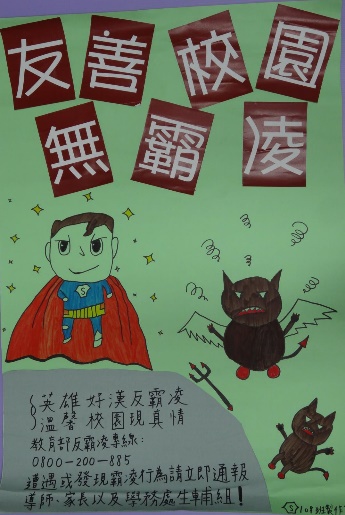 友善校園
無霸凌
S
英雄好漢反霸凌
溫馨校園現真情
教育部反霸凌專線:
0800-200-885
遭遇或發現霸凌行為請立即通報
導師、家長以及學務處生輔組!